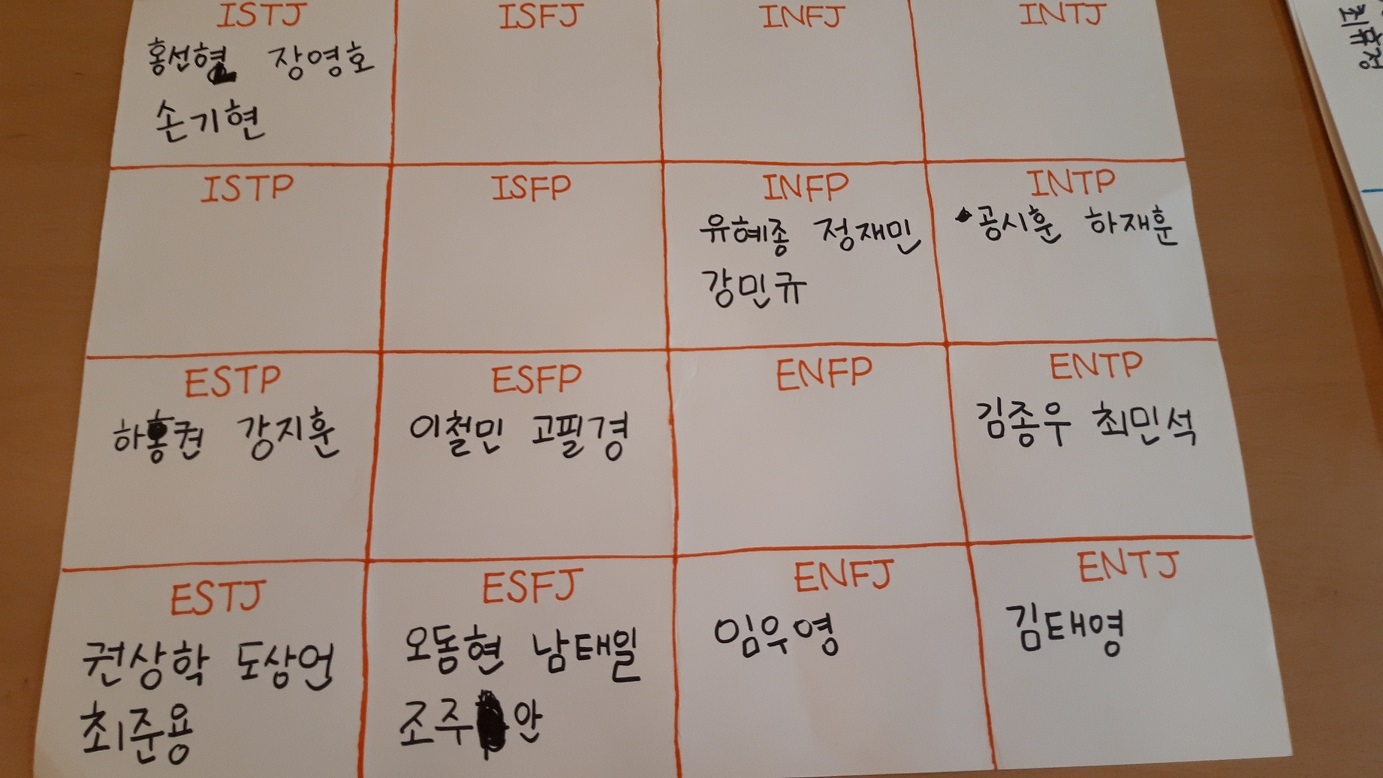 ISTJ ISFJ INFJ INTJ
홍선형 장영호
손기현
ISTP ISFP INFP INTP
유혜종 정재민 공시훈 하재훈
강민규
ESTP ESFP ENFP ENTP
하홍권 강지훈 이철민 고필경 김종우 최민석
ESTJ ESFJ ENFJ ENTJ
권상학 도상언 오동현 남태일 임우영 김태영
최준용 조주안
최휴정